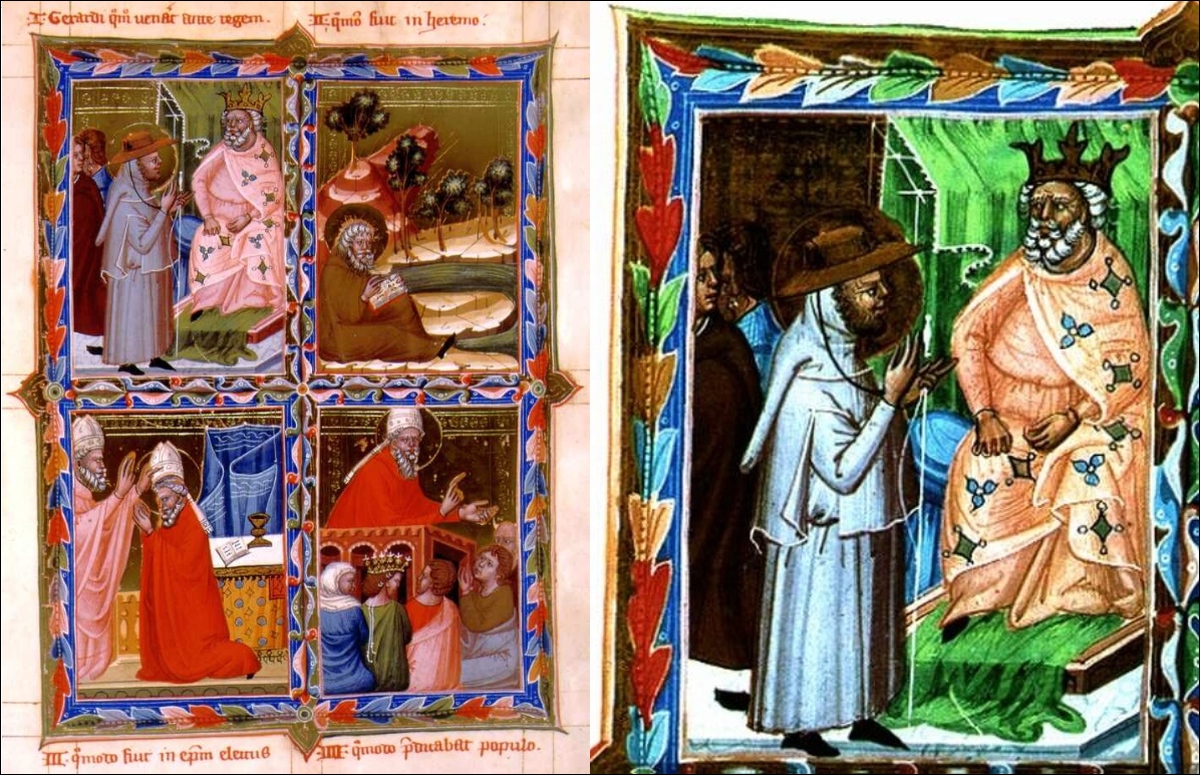 I. Gerardi qm̄ uenit ante regem.
II. qm̄o fuit in heremo.
III. qm̄odo fuit in ep̄m electus
IIII. qm̄odo p̄dicabat populo.